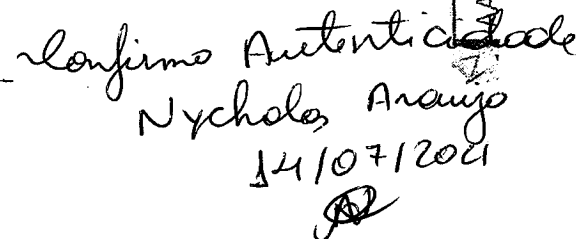 Confirmo Autenticidade
Nycholas Araujo
14/07/2021